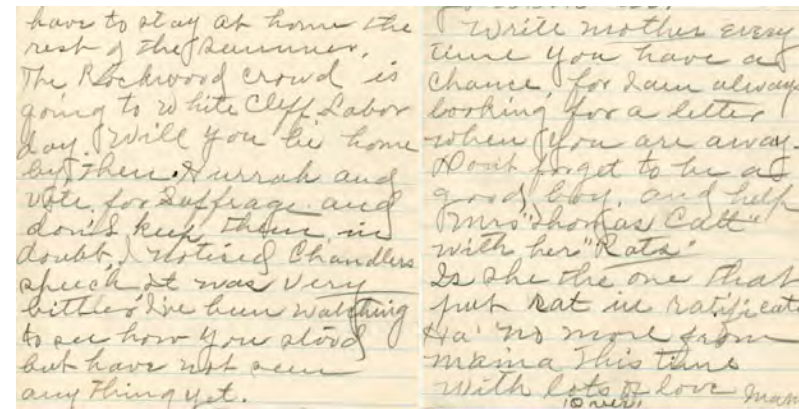 have to stay at home the
rest of the summer.
The Rockwood crowd is
going to White Cliff Labor
day. Will you be home
by then. Hurrah and
vote for Suffrage and
don't keep them in
doubt, I noticed Chandlers
speech, it was very
bitter. I've been watching
to see how you stood
but have not seen
anything yet.
Write mother every
time you have a
chance, for I am always
looking for a letter
when you are away.
Don't forget to be a
good boy, and help
Mrs "Thomas Catt"
with her "Rats."
Is she the one that
put rat in ratificat
Ha! no more from
mama this time
With lots of love Mam
(Over)